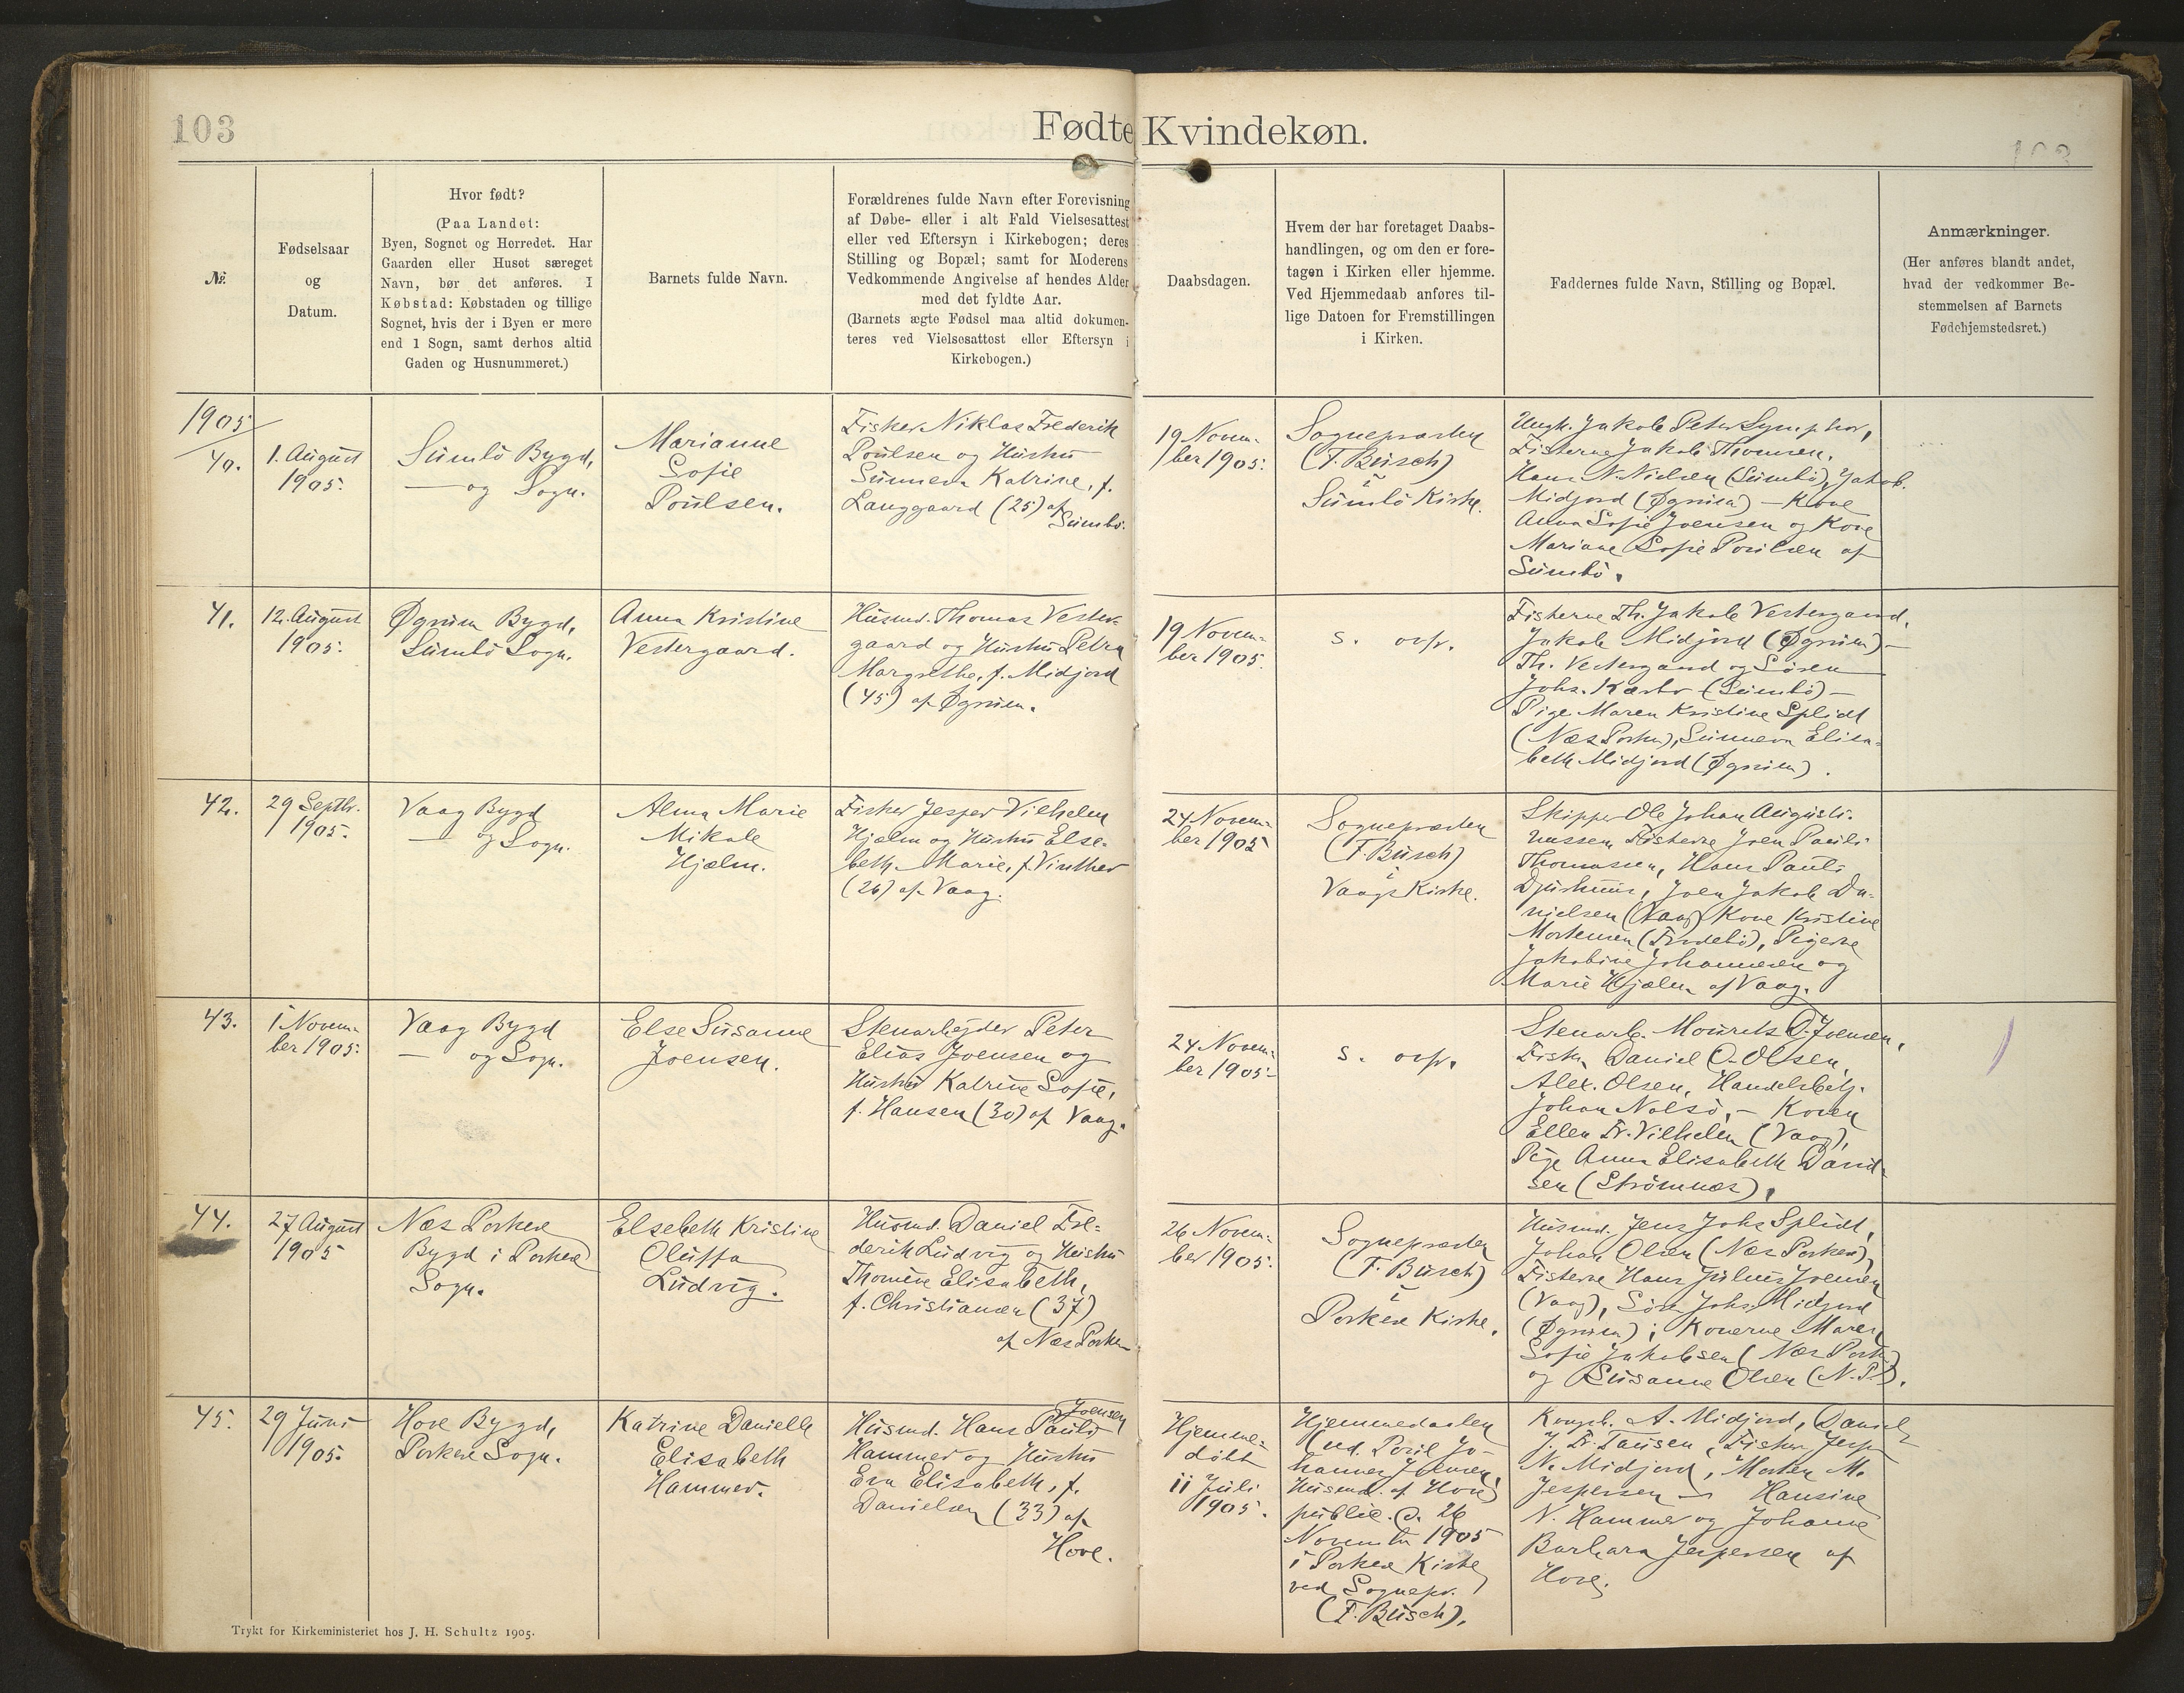 103
Fødte Kvindekøn.
103
№.
Fødselsaar
og
Datum.
Hvor født?
(Paa Landet:
Byen, Sognet og Herredet. Har
Gaarden eller Huset særeget
Navn, bør det anføres. I
Købstad: Købstaden og tillige
Sognet, hvis der i Byen er mere
end 1 Sogn, samt derhos altid
Gaden og Husnummeret.)
Barnets fulde Navn.
Forældrenes fulde Navn efter Forevisning
af Døbe- eller i alt Fald Vielsesattest
eller ved Eftersyn i Kirkebogen; deres
Stilling og Bopæl; samt for Moderens
Vedkommende Angivelse af hendes Alder
med det fyldte Aar.
(Barnets ægte Fødsel maa altid dokumen-
teres ved Vielsesattest eller Eftersyn i
Kirkebogen.)
Daabsdagen.
Hvem der har foretaget Daabs-
handlingen, og om den er fore-
tagen i Kirken eller hjemme.
Ved Hjemmedaab anføres til-
lige Datoen for Fremstillingen
i Kirken.
Faddernes fulde Navn, Stilling og Bopæl.
Anmærkninger.
(Her anføres blandt andet,
hvad der vedkommer Be-
stemmelsen af Barnets
Fødehjemstedsret.)
1905
40.
1. August
1905.
Sumbö Bygd,
— og Sogn.
Marianne
Sofie
Poulsen.
Fisker Niklas Frederik
Poulsen og Hustru
Sunneva Katrine, f.
Langgaard (25) af
Sumbö.
19 Novem-
ber 1905.
Sognepræsten
(F. Busch)
i
Sumbö Kirke.
Ungk. Jakob Peter
Fiskerne Jakob Thomsen,
Hans N. Nielsen (Sumbö), Jakob
Midjord (Øgnum) — Kone
Anna Sofie Joensen og Kone
Mariane Sofie Poulsen af
Sumbö.
41.
12. August
1905.
Øgnum Bygd,
Sumbö Sogn.
Anna Kristine
Vestergaard.
Husmd. Thomas Vester-
gaard og Hustru Petra
Margrethe, f. Midjord
(45) af Øgnum.
19 Novem-
ber 1905.
s. ovfr.
Fiskerne Th. Jakob Vestergaard,
Jakob Midjord (Øgnum) —
Th. Vestergaard og Sören
Johs. Kærbo (Sumbö) —
Pige Maren Kristine Splidt
(Næs Porkere), Sunneva Elisa-
beth Midjord (Øgnum).
42.
29 Septbr.
1905.
Vaag Bygd
— og Sogn.
Alma Marie
Mikale
Hjælm.
Fisker Jesper Vilhelm
Hjælm og Hustru Else-
beth Marie, f. Vinther
(26) af Vaag.
24 Novem-
ber 1905
Sognepræsten
(F. Busch)
i
Vaags Kirke.
Skipper Ole Johan Augusti-
nussen, Fiskerne Joen Pauli
Thomassen, Hans Pauli
Djurhuus, Joen Jakob Da-
nielsen (Vaag) Kone Kristine
Mortensen (Frodebö), Pigerne
Jakobine Johannesen og
Marie Hjælm af Vaag.
43.
1 Novem-
ber 1905.
Vaag Bygd
— og Sogn.
Else Susanne
Joensen.
Stenarbejder Peter
Elias Joensen og
Hustru Katrine Sofie,
f. Hansen (30) af Vaag.
24 Novem-
ber 1905
s. ovfr.
Stenarb. Mourits D. Joensen,
Fisk. Daniel O. Olsen,
Alex. Olsen, Handelsbetj.
Johan Nolsö, — Konen
Ellen Fr. Vilhelm (Vaag),
Pige Anna Elisabeth David-
sen (Strömnæs).
44.
27 August
1905
Næs Porkere
Bygd i Porkere
Sogn.
Elsebeth Kristine
Oluffa
Ludvig.
Husmd. Daniel Fre-
derik Ludvig og Hustru
Thomine Elisabeth,
f. Christiansen (37)
af Næs Porkere
26 Novem-
ber 1905.
Sognepræsten
(F. Busch)
i
Porkere Kirke.
Husmd. Jens Johs Splidt,
Johan Olsen (Næs Porkere),
Fiskerne Hans Julius Joensen
(Vaag), Sören Johs. Midjord
(Øgnum); Konerne Maren
Sofie Jakobsen (Næs Pork.)
og Susanne Olsen (N. P.).
45.
29 Juni
1905.
Hove Bygd,
Porkere Sogn.
Katrine Danielle
Elisabeth
Hammer.
Joensen
Husmd. Hans Pauli
Hammer og Hustru
Eva Elisabeth, f.
Danielsen (33) af
Hove.
Hjemme-
döbt
11 Juli
1905.
Hjemmedøbt
ved Poul Jo-
hannes Joensen,
Husmd. af Hove
public. d. 26
Novembr 1905
i Porkere Kirke
ved Sognepr.
(F. Busch).
Kongsb. A. Midjord, Daniel
J. Fr. Tausen, Fisker Jesp.
N. Midjord, Morten M.
Jespersen — Hansine
N. Hammer og Johanne
Barbara Jespersen af
Hove.
Trykt for Kirkeministeriet hos J. H. Schultz 1905.